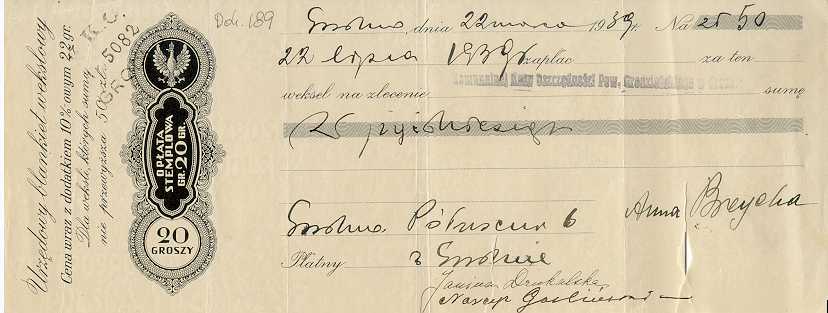 Urzędowy blankiet wekslowy
Cena wraz z dodatkiem 10%-owym 22 gr.
Dla weksli, których suma
nie przewyższa 50 zł.
K.C.
5082
Dok. 189
OPŁATA
STEMPLOWA
GR. 20 GR.
20
GROSZY
Grodno, dnia 22 marca 1939 r. Na zł 50
22 lipca 1939 r. zapłac za ten
weksel na zlecenie Komunalnej Kasy Oszczędności Pow. Grodzieńskiego w sumę
zł pięćdziesiąt
Grodno 6 Anna
Płatny w Grodnie
Janina